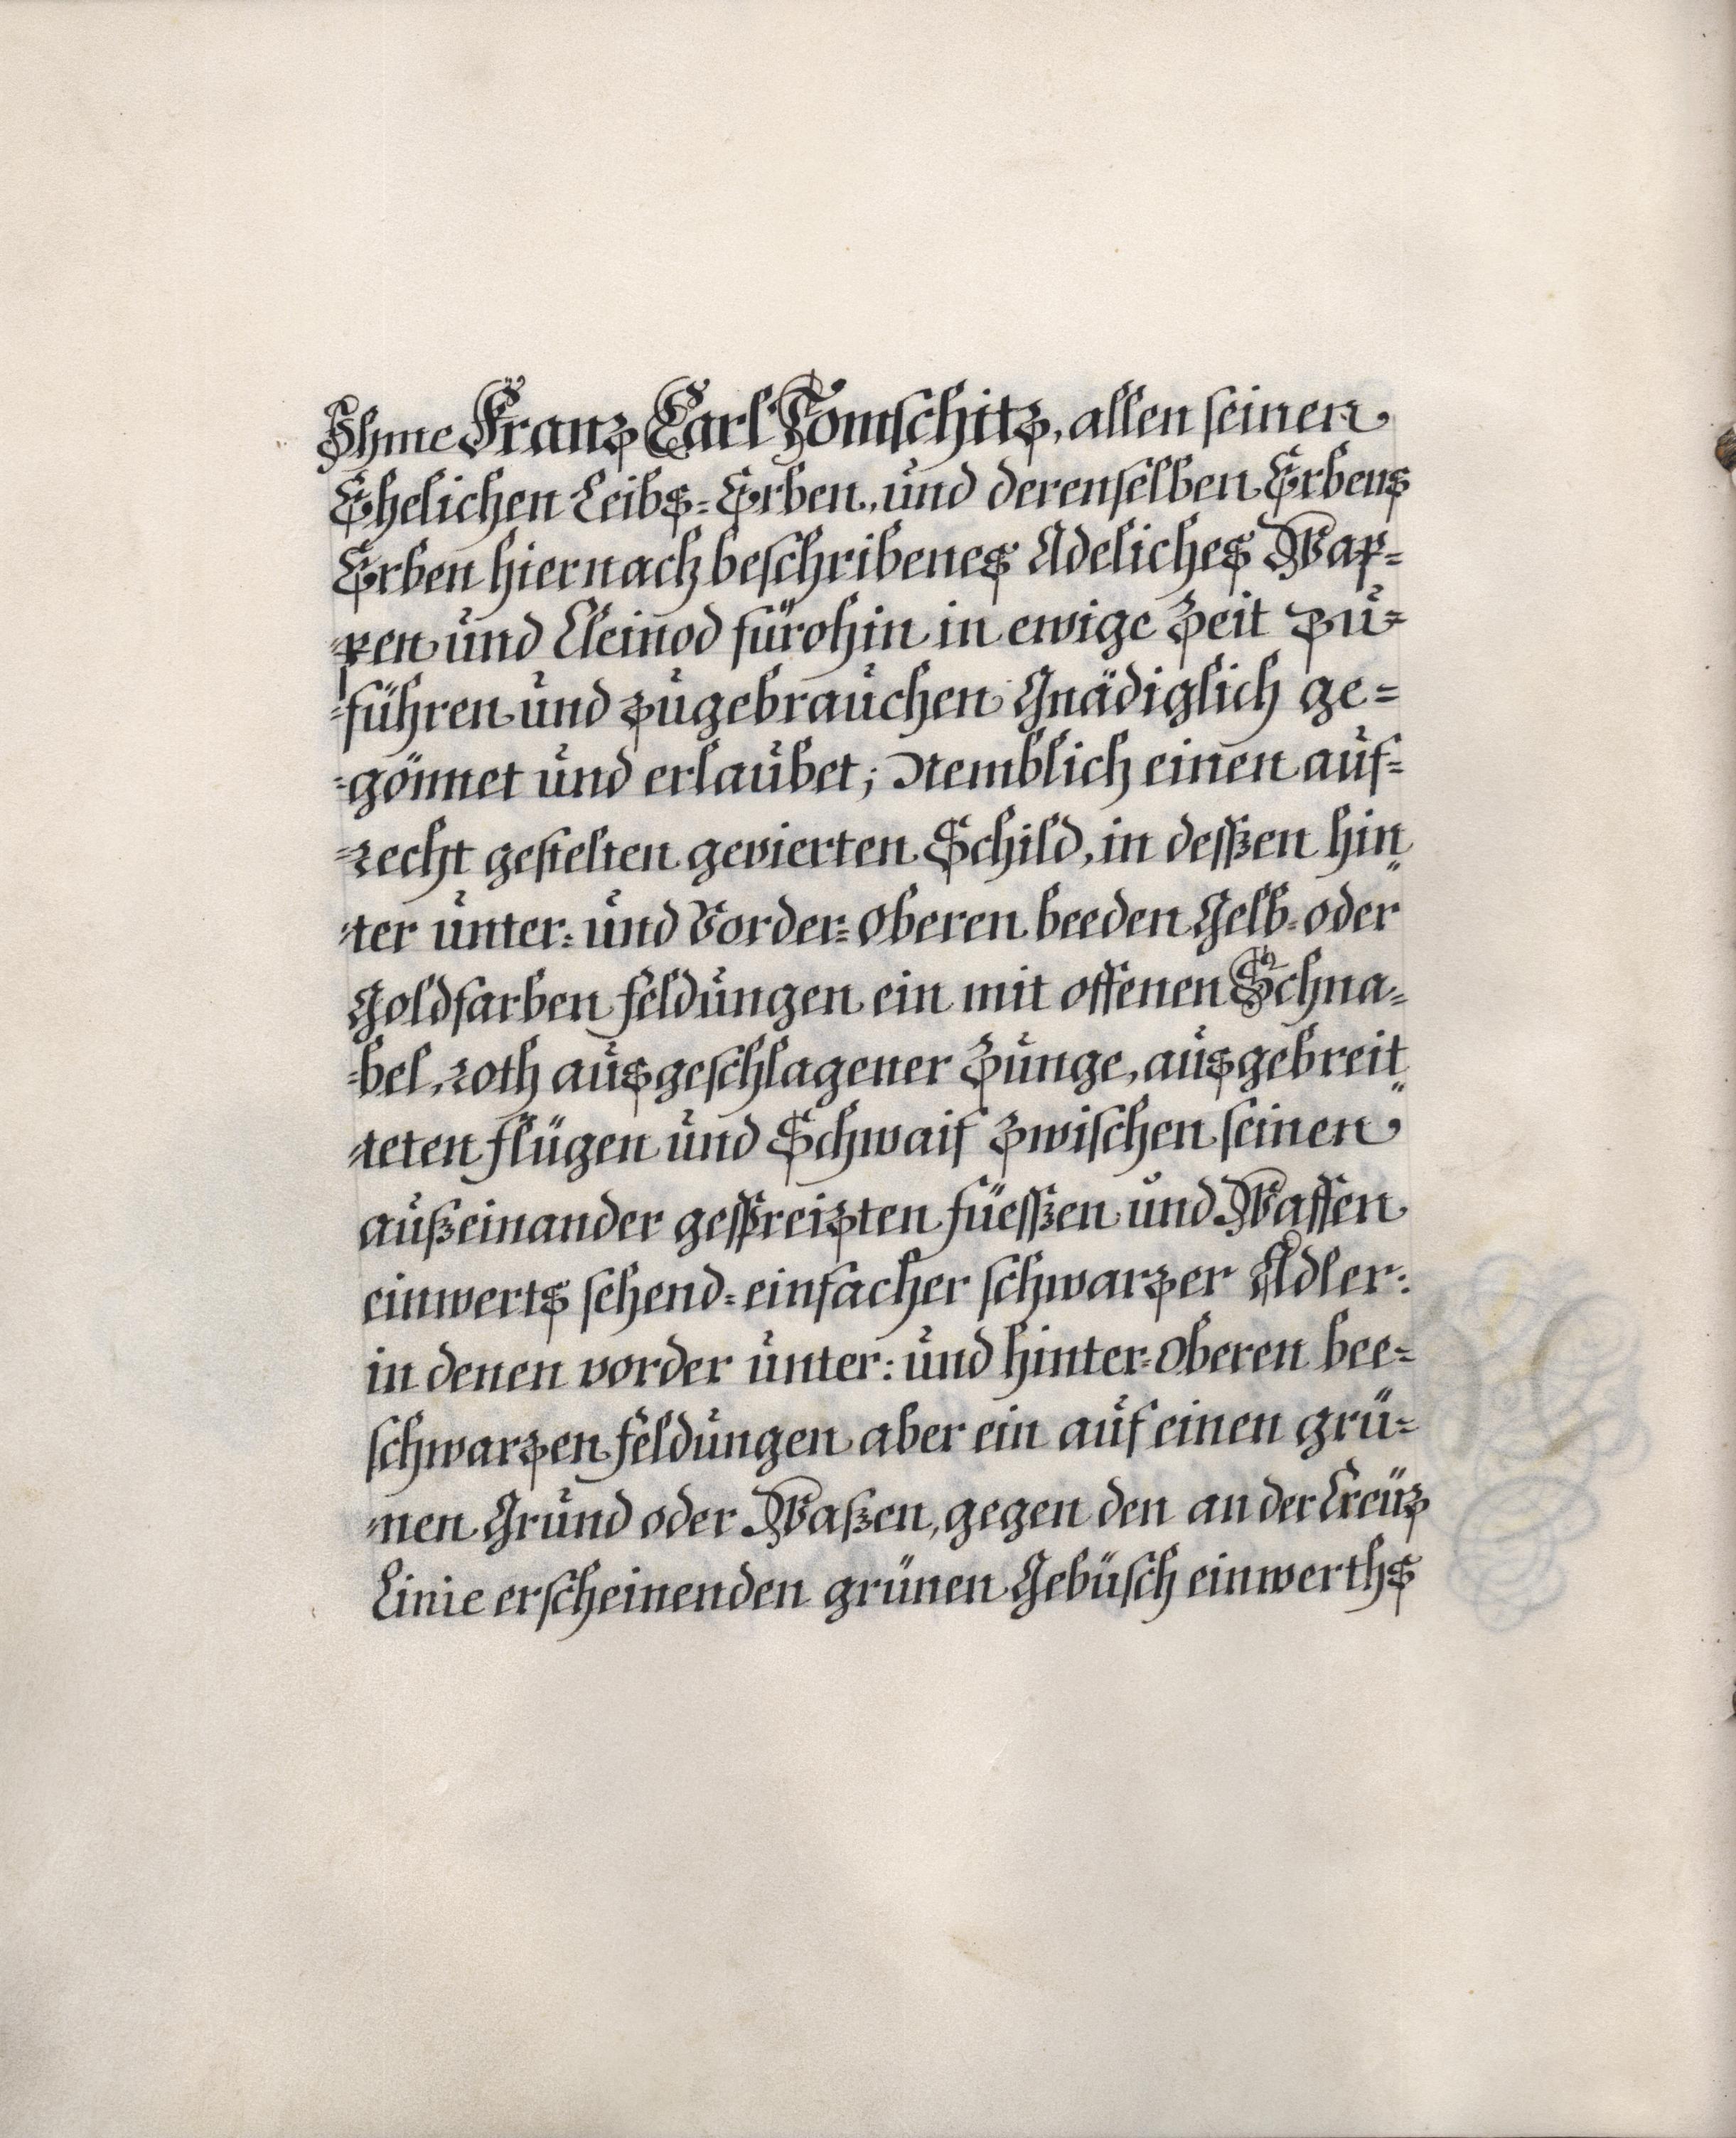 Ihme Franz Carl Tomschitz, allen seinen
Ehelichen Leibs=Erben, und derenselben Erbens
Erben hiernach beschribenes Adeliches Wap=
=pen und Cleinod fürohin in ewige Zeit zu=
=führen und zugebrauchen Gnädiglich ge=
=gönnet und erlaubet; Nemblich einen auf=
=recht gestelten gevierten Schild, in deßen hin
=ter unter= und Vorder=Oberen beeden Gelb=oder
Goldfarben feldungen ein mit offenen Schna=
=bel, roth ausgeschlagener Zunge, ausgebreit
=teten flügen und Schwaif zwischen seinen
außeinander gespreizten füeßen und Waffen
einwerts sehend=einfacher schwarzer Adler:
in denen vorder unter: und hinter=Oberen bee=
schwarzen feldungen aber ein auf einen grü=
=nen Grund oder Waßen, gegen den an der Creüz
Linie erscheinenden grünen Gebüsch einwerths